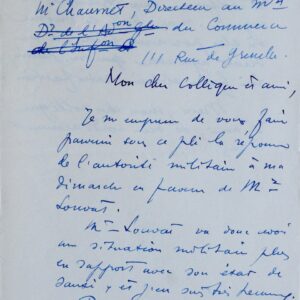 Mr Chaumet, Directeur au Mère
Dr de l'Aon Gle du Commerce
111 Rue de Grenelle
Mon cher collègue et ami,
Je m'empresse de vous faire
parvenir sous ce pli la réponse
de l'autorité militaire à ma
démarche en faveur de Mr
Louvat.
Mr Louvat va donc avoir
une situation militaire plus
en rapport avec son état de
santé et j'en suis très heureux.